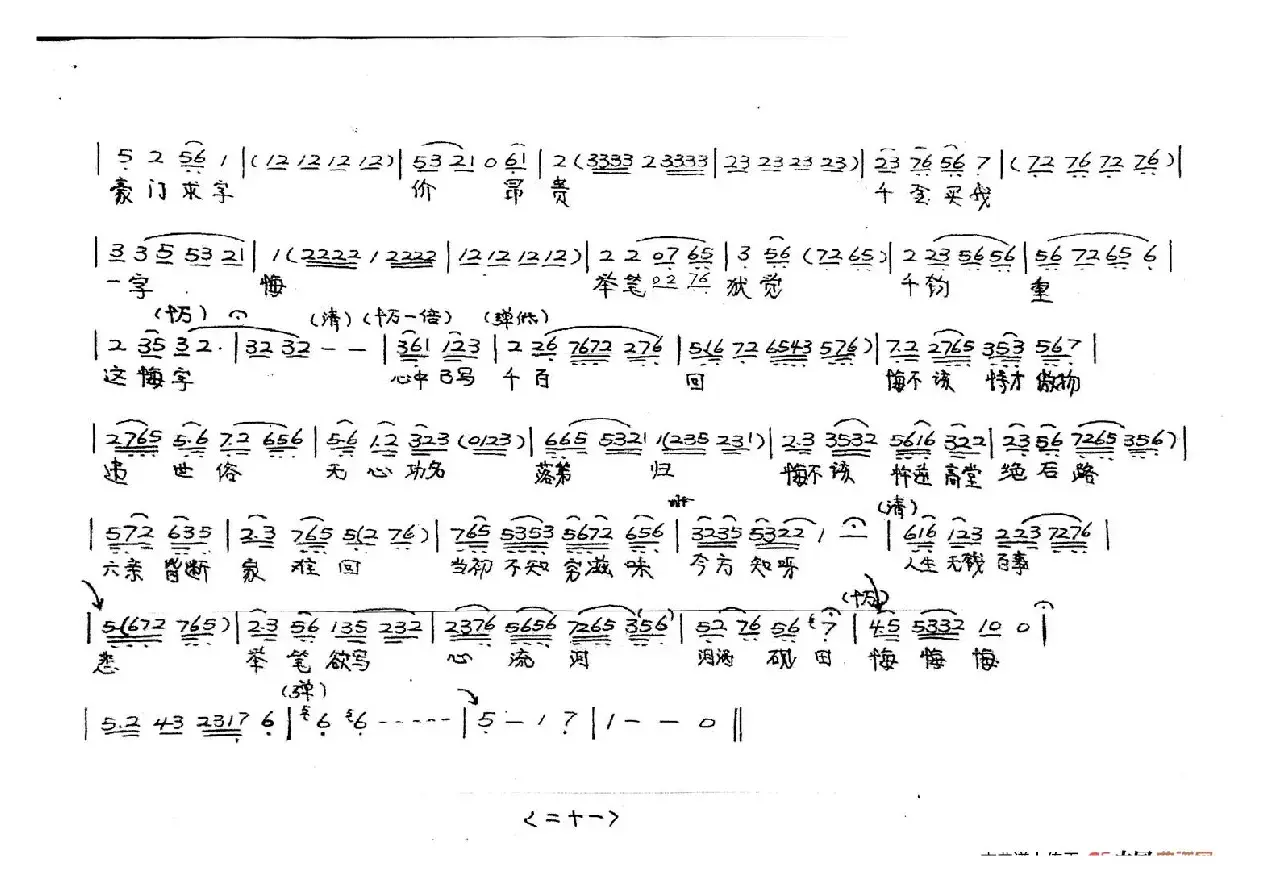 5 2 56 1 | (12 12 12 12) | 53 21 0 61 | 2 (3333 2 3333 | 23 23 23 23) | 23 76 56 7 | (72 76 72 76) |
豪门求字 价 昂贵 千金买我
| 3 3 5 53 21 | 1 (2222 1 2222 | 12 12 12 12) | 2 2 07 65 | 3 56 (72 65) | 2 23 56 56 | 56 72 65 6 |
一字 悔 举笔 02 76 犹觉 千钧 重
(十万) (清) (十万一倍) (弹低)
| 2 35 3 2· | 32 32 - - | 361 123 | 2 26 7672 276 | 5(6 72 6543 576) | 7.2 2765 353 567 |
这悔字 心中已写 千百 回 悔不该 恃才傲物
| 2765 5.6 7.2 656 | 5.6 1.2 323 (0123) | 665 5321 1(235 231) | 2.3 3532 5616 322 | 23 56 7265 356) |
遗世俗 无心功名 落第 归 悔不该 忤逆高堂 绝后路
(清)
| 572 635 | 2.3 765 5(2 76) | 765 5353 5672 656 | 3235 5322 1 - | 616 123 223 7276 |
六亲皆断 家难回 当初不知穷滋味 今方知呀 人生无钱百事
(十万)
| 5(672 765) | 2.3 56 135 232 | 2376 5656 7265 (356) | 52 76 56 7 | 4.5 5332 10 0 |
悲 举笔欲写 心流泪 泪洒砚田 悔悔悔
(弹)
| 5.2 43 2317 6 | 56 56 ----- | 5 - 1 7 | 1 - - 0 ‖
<二十一>